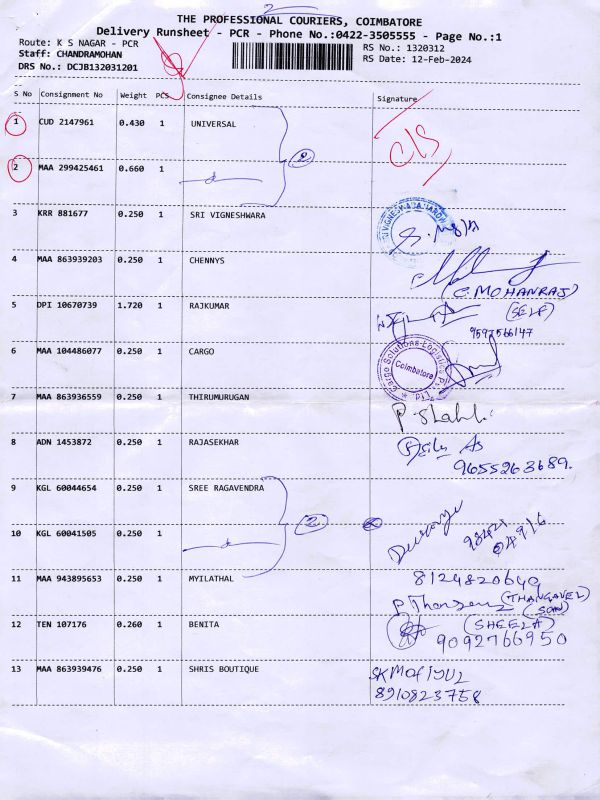 2
THE PROFESSIONAL COURIERS, COIMBATORE
Delivery Runsheet - PCR - Phone No.:0422-3505555 - Page No.:1
Route: K S NAGAR - PCR
RS No.: 1320312
Staff: CHANDRAMOHAN
RS Date: 12-Feb-2024
DRS No.: DCJB132031201
S No Consignment No Weight PCS Consignee Details Signature
1 CUD 2147961 0.430 1 UNIVERSAL
C/S
2 MAA 299425461 0.660 1
2
3 KRR 881677 0.250 1 SRI VIGNESHWARA
4 MAA 863939203 0.250 1 CHENNYS
(C. MOHANRAJ)
5 DPI 10670739 1.720 1 RAJKUMAR
(SELF)
9597566147
6 MAA 104486077 0.250 1 CARGO
Cargo Solutions Logistics
Coimbatore
7 MAA 863936559 0.250 1 THIRUMURUGAN
8 ADN 1453872 0.250 1 RAJASEKHAR
9655263689.
9 KGL 60044654 0.250 1 SREE RAGAVENDRA
10 KGL 60041505 0.250 1
2
11 MAA 943895653 0.250 1 MYILATHAL
8124820649
(THANGAVEL)
(SON)
12 TEN 107176 0.260 1 BENITA
(SHEELA)
9092766950
13 MAA 863939476 0.250 1 SHRIS BOUTIQUE
SK Mofijul
8910823758